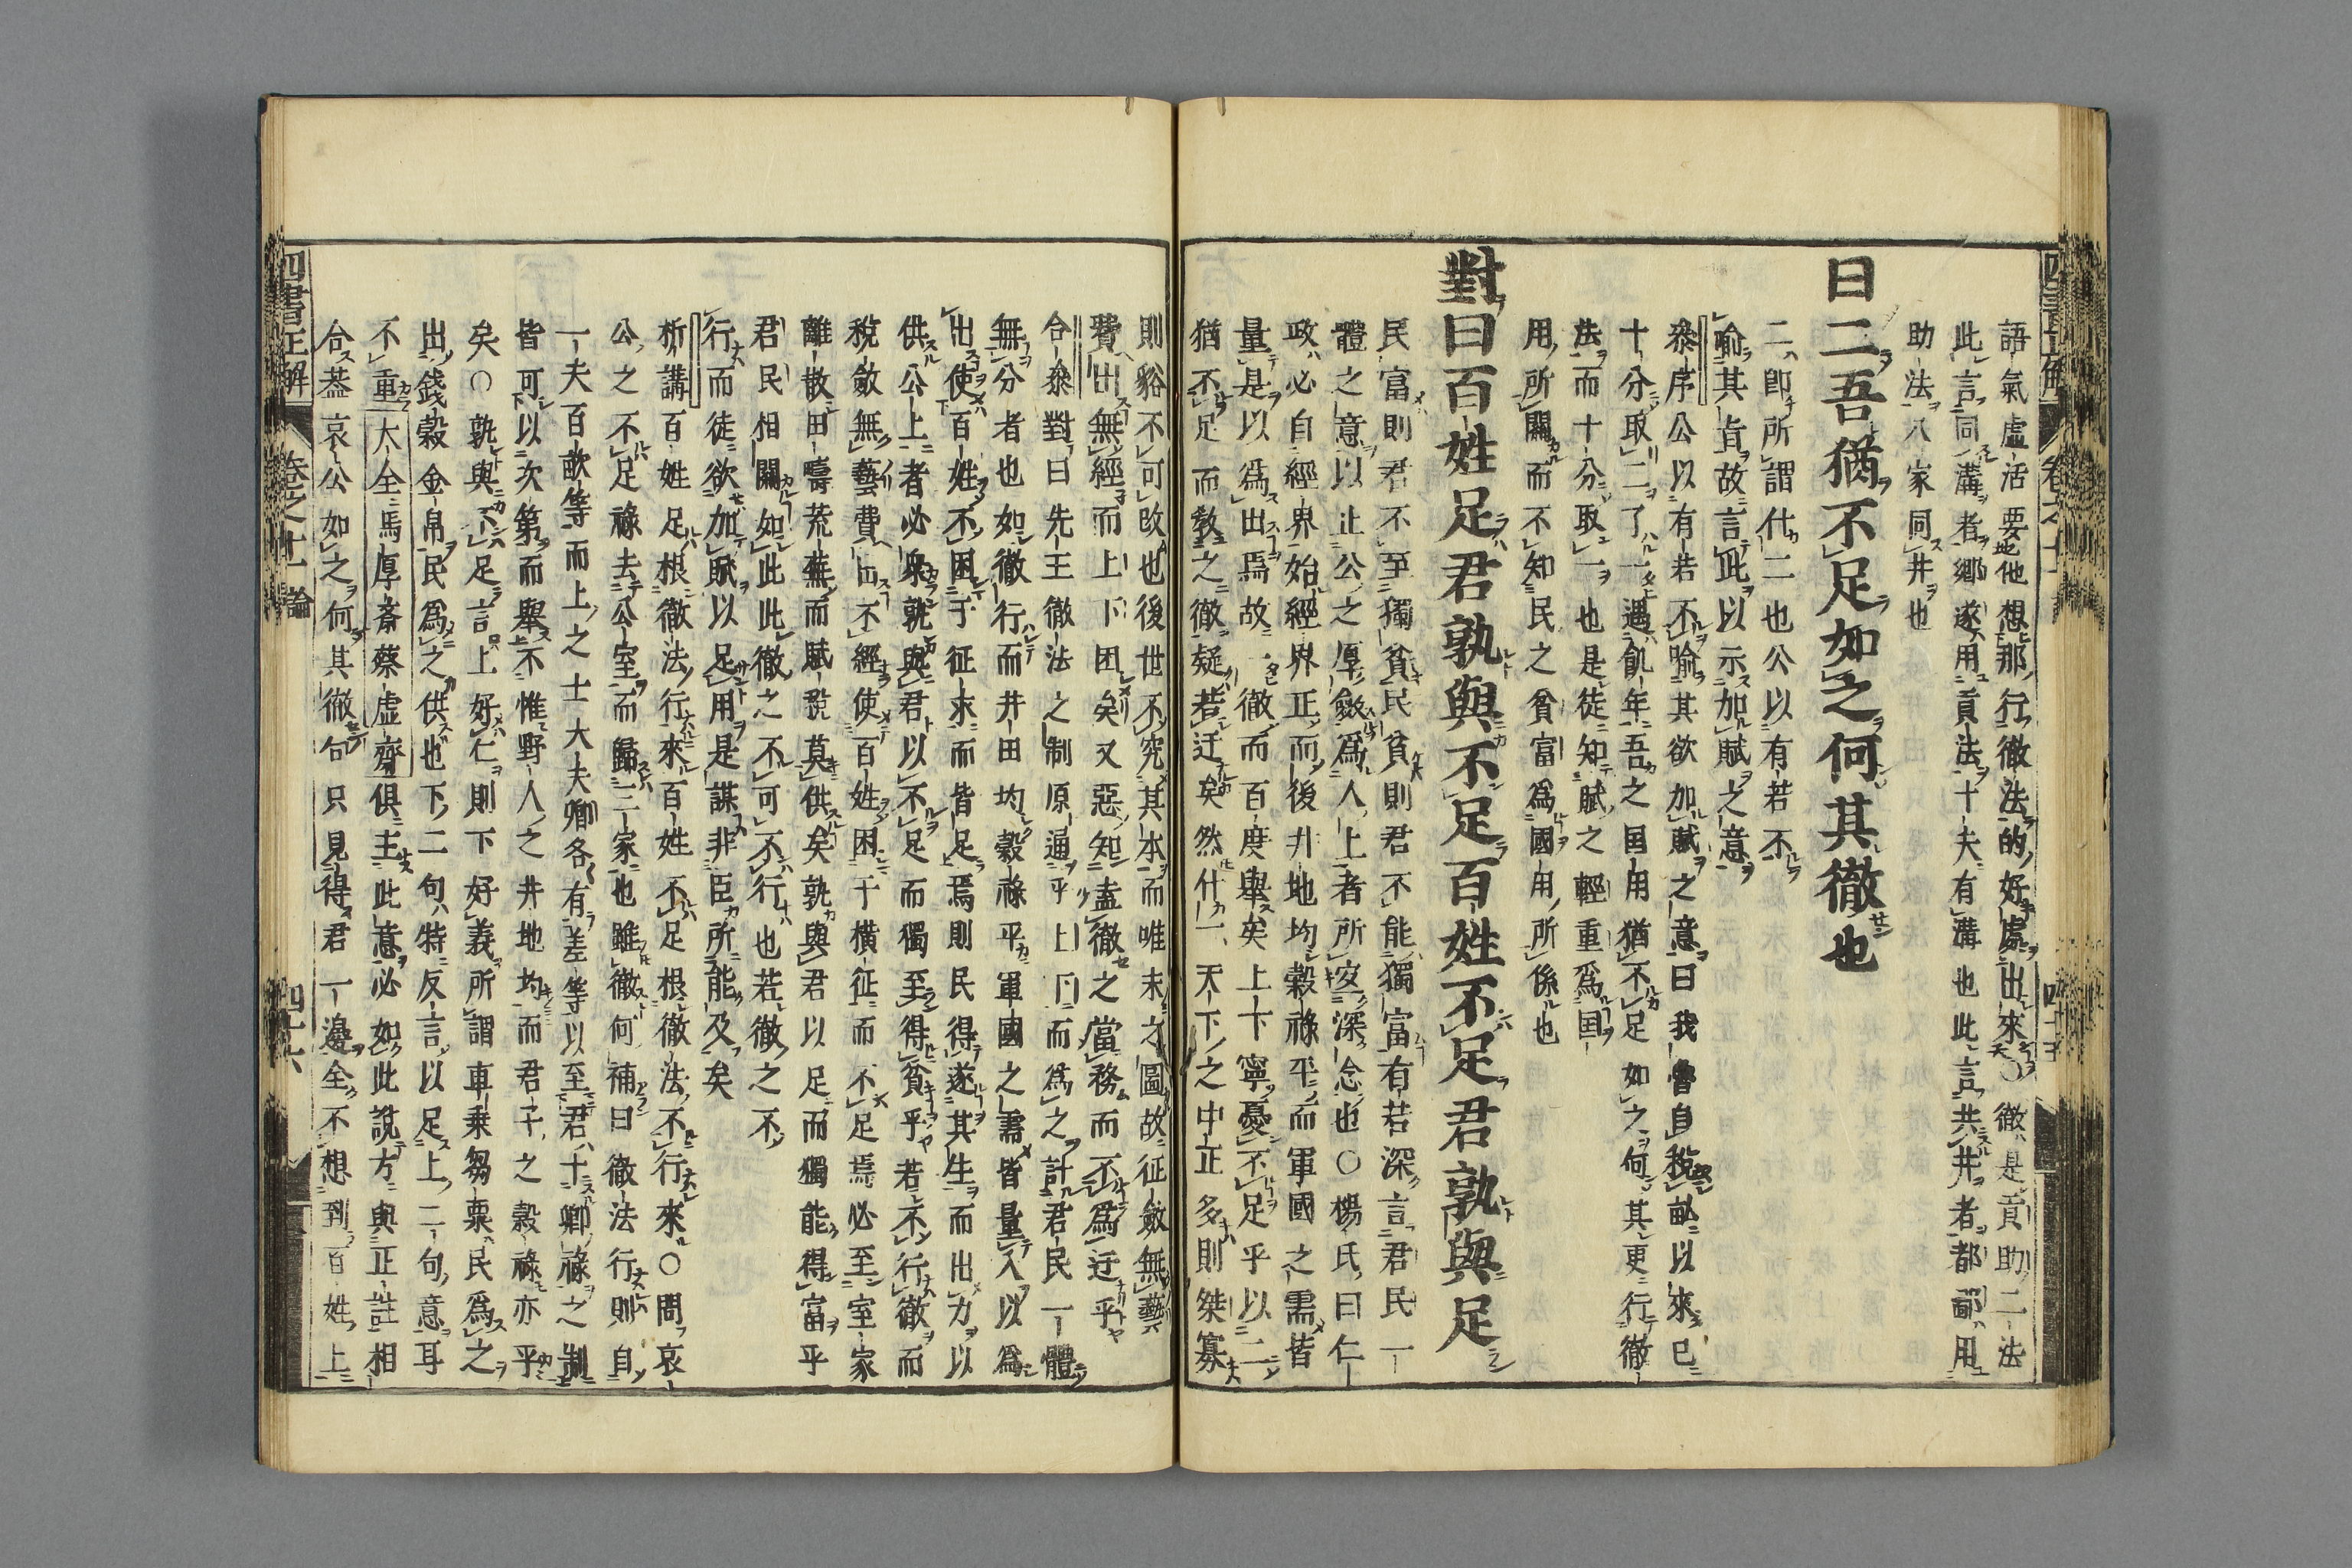 語氣虛活要他想那行徹法的好處出來○徹是貢助二法
此言同溝者鄉遂用貢法十夫有溝也此言共井者都鄙用
助法八家同井也
曰二吾猶不足如之何其徹也
二卽所謂什二也公以有若不
喻其旨故言此以示加賦之意
叅序公以有若不喻其欲加賦之意曰我魯自稅畝以來已
十分取二了一遇飢年吾之国用猶不足如之何其更行徹
法而十分取一也是徒知賦之輕重爲国
用所關而不知民之貧富爲國用所係也
對曰百姓足君孰與不足百姓不足君孰與足
民富則君不至獨貧民貧則君不能獨富有若深言君民一
體之意以止公之厚斂爲人上者所宜深念也○楊氏曰仁
政必自經界始經界正而後井地均穀祿平而軍國之需皆
量是以爲出焉故一徹而百度舉矣上下寧憂不足乎以二
猶不足而教之徹疑若迂矣然什一天下之中正多則桀寡
則貉不可改也後世不究其本而唯末之圖故征斂無藝
費出無經而上下困矣又惡知盍徹之當務而不爲迂乎
合叅對曰先王徹法之制原通乎上下而爲之計君民一體
無分者也如徹行而井田均穀祿平軍國之需皆量入以爲
出使百姓不困于征求而皆足焉則民得遂其生而出力以
供公上者必衆孰與君以不足而獨至得貧乎若不行徹而
稅斂無藝費出不經使百姓困于橫征而不足焉必至室家
離散田疇荒蕪而賦稅莫供矣孰與君以足而獨能得富乎
君民相關如此此徹之不可不行也若徹之不
行而徒欲加賦以足用是謀非臣所能及矣
析講百姓足根徹法行來百姓不足根徹法不行來○問哀
公之不足祿去公室而歸三家也雖徹何補曰徹法行則自
一夫百畝等而上之士大夫卿各有差等以至君十卿祿之制
皆可以次第而舉不惟野人之井地均而君子之穀祿亦平
矣○孰與不足言上好仁則下好義所謂車乗芻粟民爲之
出錢穀金帛民爲之供也下二句特反言以足上二句意耳
不重大全馬厚斎蔡虛齋俱主此意必如此說方與正註相
合葢哀公如之何其徹句只見得君一邊全不想到百姓上
四書正解
卷之十一論
四十六